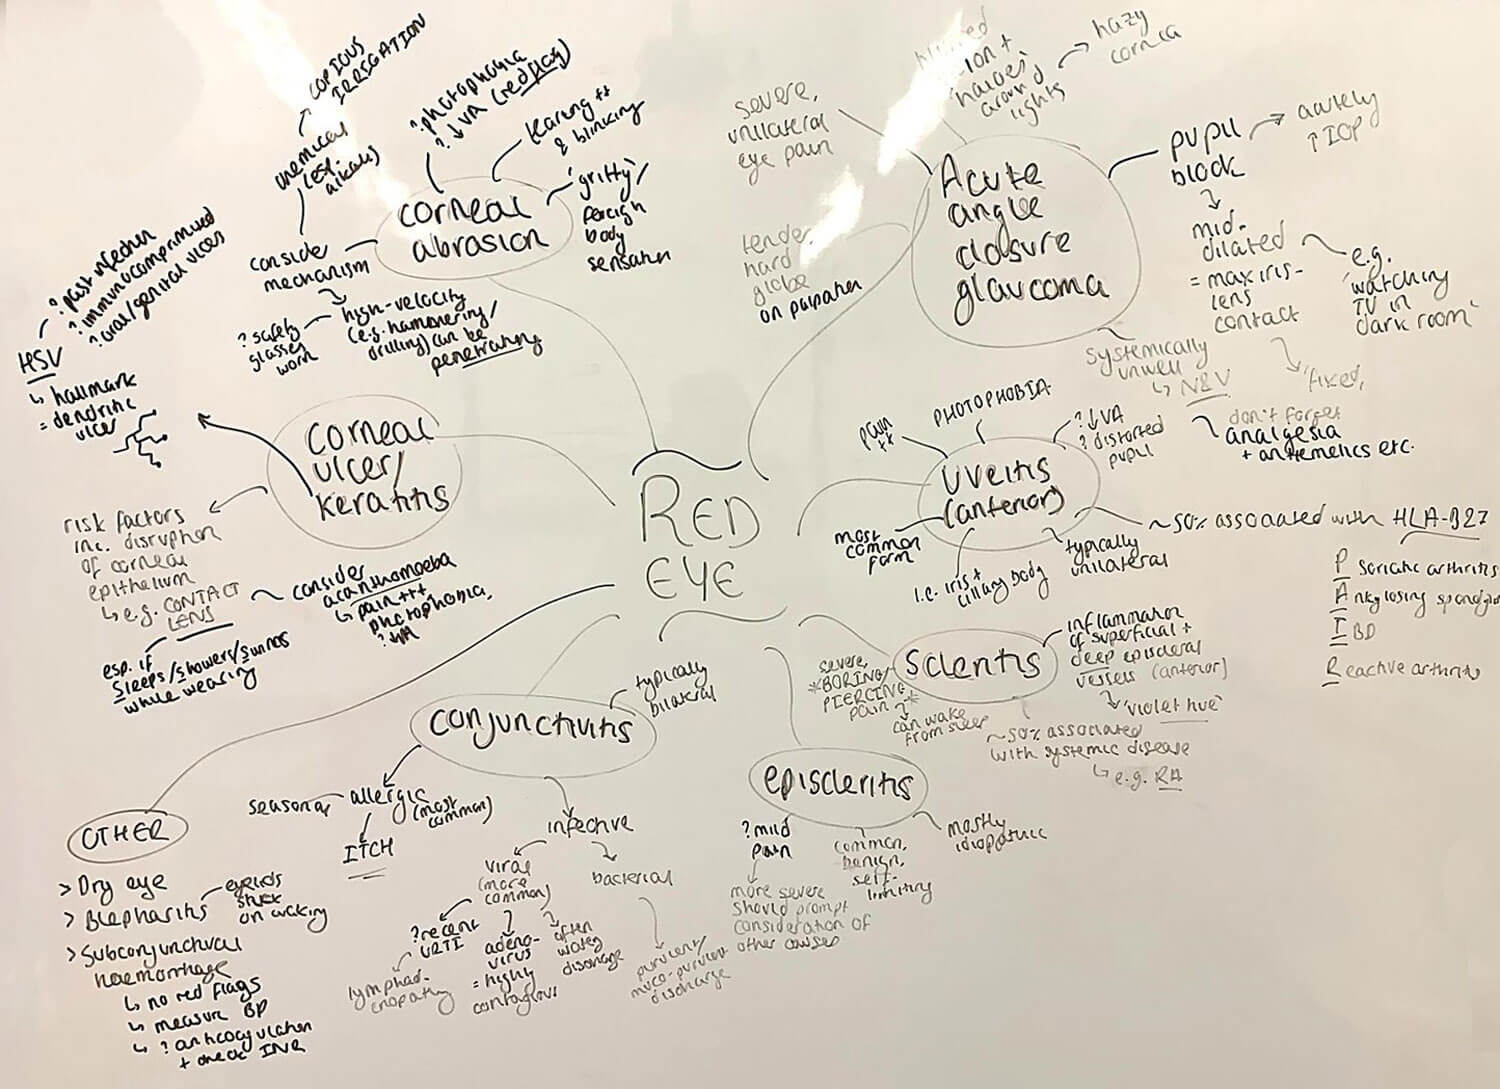 RED
EYE
corneal
abrasion
?photophobia
? ↓VA (red flag)
tearing ++
& blinking
'gritty'/
foreign
body
sensation
consider
mechanism
chemical
(esp.
alkali)
COPIOUS
IRRIGATION
high-velocity
(e.g. hammering/
drilling) can be
penetrating
? safety
glasses
worn
corneal
ulcer/
keratitis
HSV
? past infection
? immunocompromised
? oral/genital ulcers
↳ hallmark
= dendritic
ulcer
risk factors
inc. disruption
of corneal
epithelium
↳ e.g. CONTACT
LENS
consider
acanthamoeba
↳ pain +++
photophobia
? ↓VA
esp. if
Sleeps/Showers/Swims
while wearing
Acute
angle
closure
glaucoma
severe,
unilateral
eye pain
blurred
vision +
haloes
around
lights
hazy
cornea
tender
hard
globe
on palpation
pupil
block
acutely
↑ IOP
mid-
dilated
= max iris-
lens
contact
e.g.
'watching
TV in
dark room'
'fixed'
systemically
unwell
↳ N&V
don't forget
analgesia
+ antiemetics etc.
uveitis
(anterior)
pain
++
PHOTOPHOBIA
? ↓VA
? distorted
pupil
~50% associated with HLA-B27
Psoriatic arthritis
Ankylosing
IBD
Reactive arthritis
most
common
form
i.e. iris +
ciliary body
typically
unilateral
scleritis
inflammation
of superficial +
deep episcleral
vessels (anterior)
'violet hue'
severe,
*BORING/
PIERCING
pain*
can wake
from sleep
~50% associated
with systemic disease
↳ e.g. RA
episcleritis
? mild
pain
more severe
should prompt
consideration of
other causes
common,
benign,
self-
limiting
mostly
idiopathic
conjunctivitis
typically
bilateral
seasonal
allergic
(most
common)
ITCH
infective
viral
(more
common)
? recent
URTI
lymphad-
enopathy
adeno-
virus
= highly
contagious
often
watery
discharge
bacterial
purulent/
muco-purulent
discharge
OTHER
> Dry eye
> Blepharitis
eyelids
stuck
on waking
> Subconjunctival
haemorrhage
↳ no red flags
↳ measure BP
↳ ? anticoagulation
+ check INR